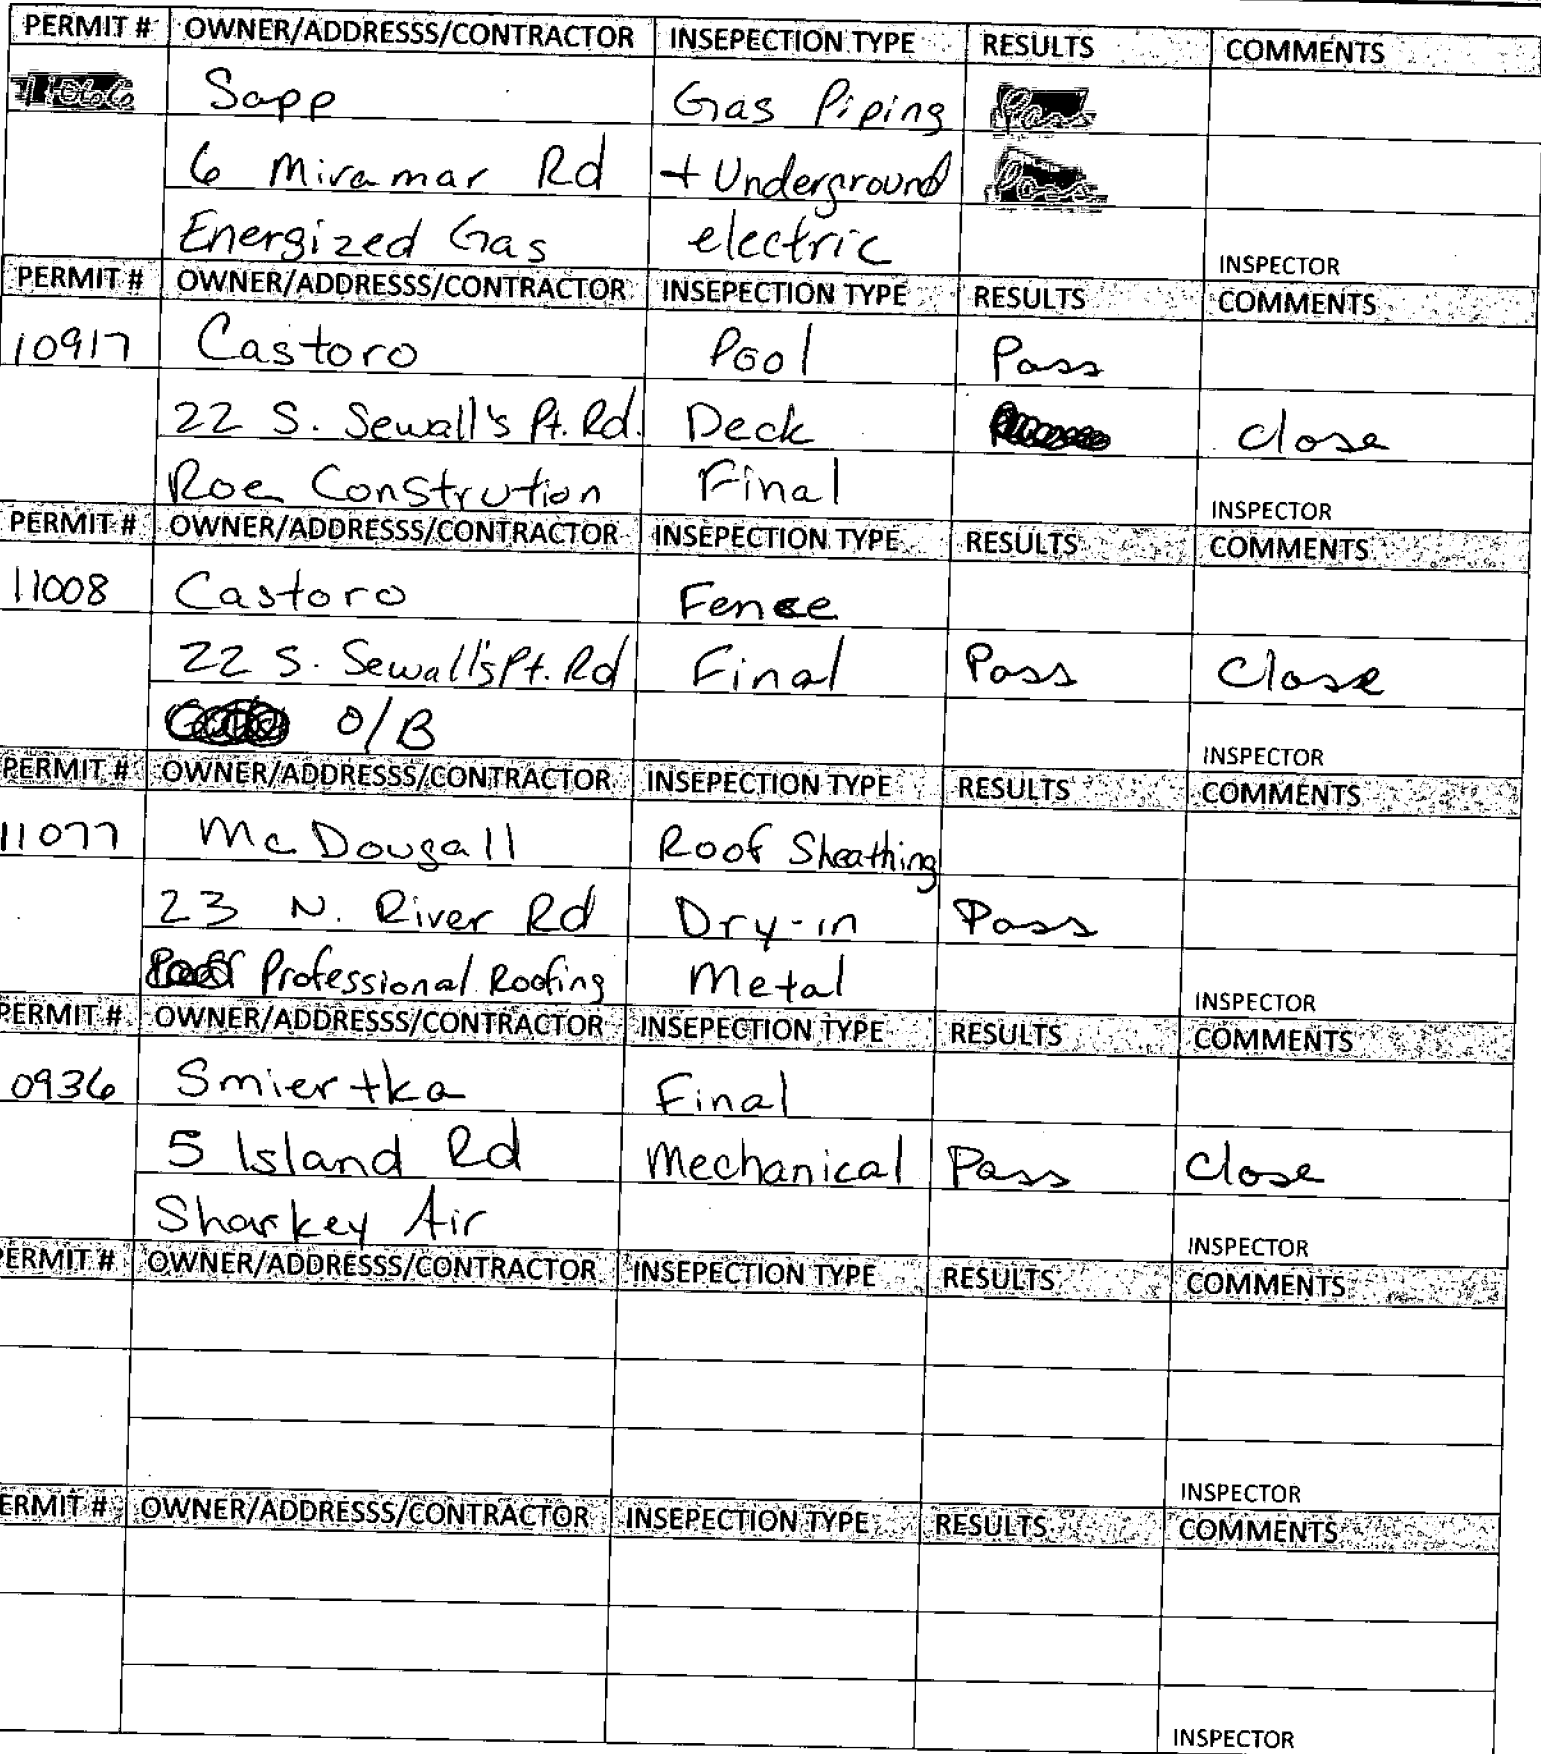 PERMIT # OWNER/ADDRESSS/CONTRACTOR INSEPECTION TYPE RESULTS COMMENTS
11066 Sapp Gas Piping Pass
6 Miramar Rd + Underground Pass
Energized Gas electric INSPECTOR
PERMIT # OWNER/ADDRESSS/CONTRACTOR INSEPECTION TYPE RESULTS COMMENTS
10917 Castoro Pool Pass
22 S. Sewall's Pt. Rd. Deck Close
Roe Constrution Final INSPECTOR
PERMIT # OWNER/ADDRESSS/CONTRACTOR INSEPECTION TYPE RESULTS COMMENTS
11008 Castoro Fence
22 S. Sewall's Pt. Rd Final Pass Close
O/B INSPECTOR
PERMIT # OWNER/ADDRESSS/CONTRACTOR INSEPECTION TYPE RESULTS COMMENTS
11077 McDougall Roof Sheathing
23 N. River Rd Dry-in Pass
Professional Roofing Metal INSPECTOR
PERMIT # OWNER/ADDRESSS/CONTRACTOR INSEPECTION TYPE RESULTS COMMENTS
0936 Smiertka Final
5 Island Rd Mechanical Pass Close
Sharkey Air INSPECTOR
PERMIT # OWNER/ADDRESSS/CONTRACTOR INSEPECTION TYPE RESULTS COMMENTS
INSPECTOR
ERMIT # OWNER/ADDRESSS/CONTRACTOR INSEPECTION TYPE RESULTS COMMENTS
INSPECTOR